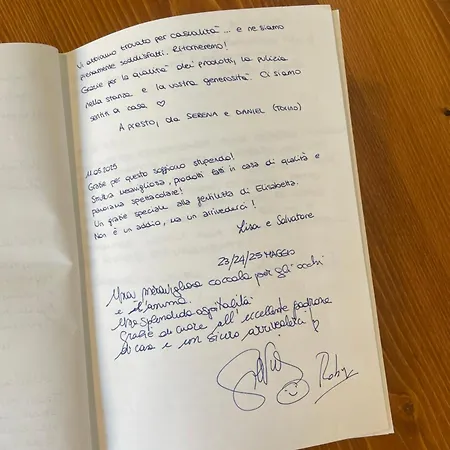 Vi abbiamo trovato per casualità ... e ne siamo
pienamente soddisfatti. Ritorneremo!
Grazie per la qualità dei prodotti, la pulizia
nella stanza e la vostra generosità. Ci siamo
sentiti a casa ♡
A presto, da SERENA e DANIEL (TORINO)
11.05.2025
Grazie per questo soggiorno stupendo!
Struttura meravigliosa, prodotti fatti in casa di qualità e
panorama spettacolare!
Un grazie speciale alla gentilezza di Elisabetta.
Non è un addio, ma un arrivederci!
Lisa e Salvatore
23/24/25 MAGGIO
Una meravigliosa coccola per gli occhi
e l'anima.
Una splendida ospitalità
Grazie di cuore all'eccellente padrona
di casa e un sicuro arrivederci
Roby